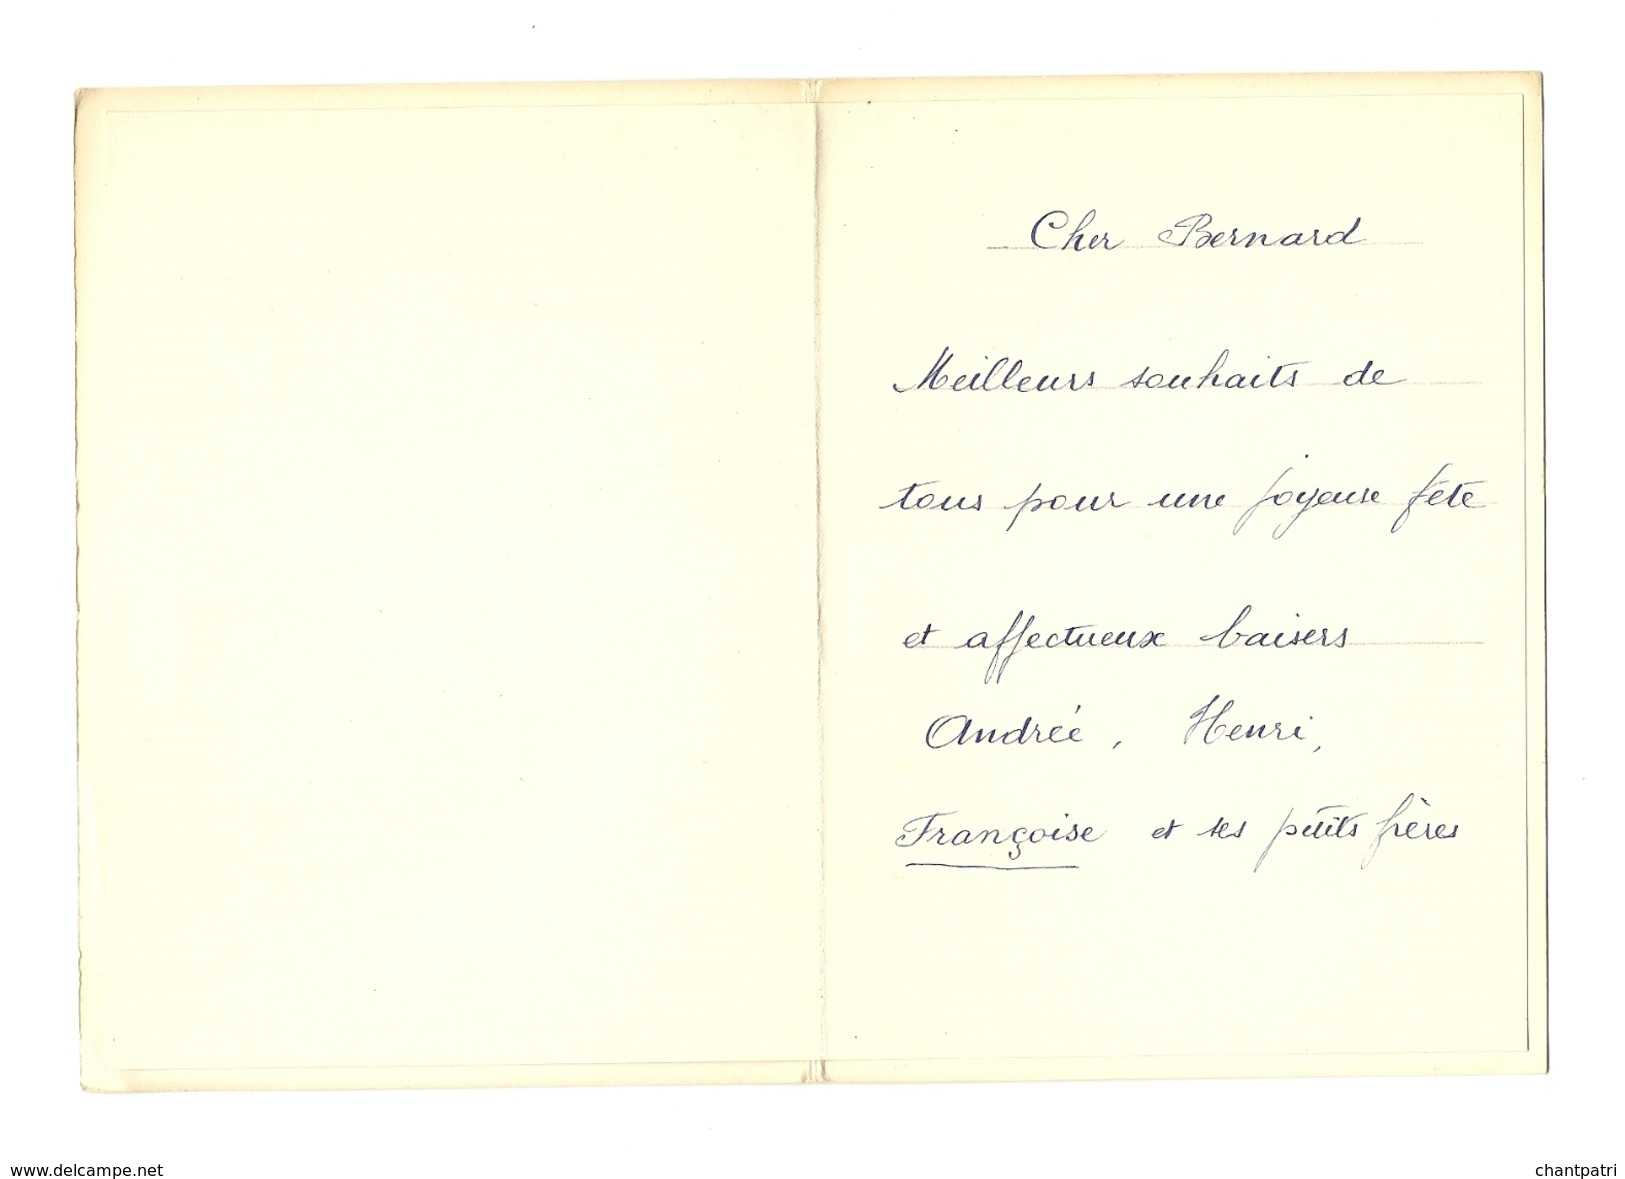 Cher Bernard
Meilleurs souhaits de
tous pour une joyeuse fête
et affectueux baisers
Andrée, Henri,
Françoise et ses petits frères
www.delcampe.net
chantpatri